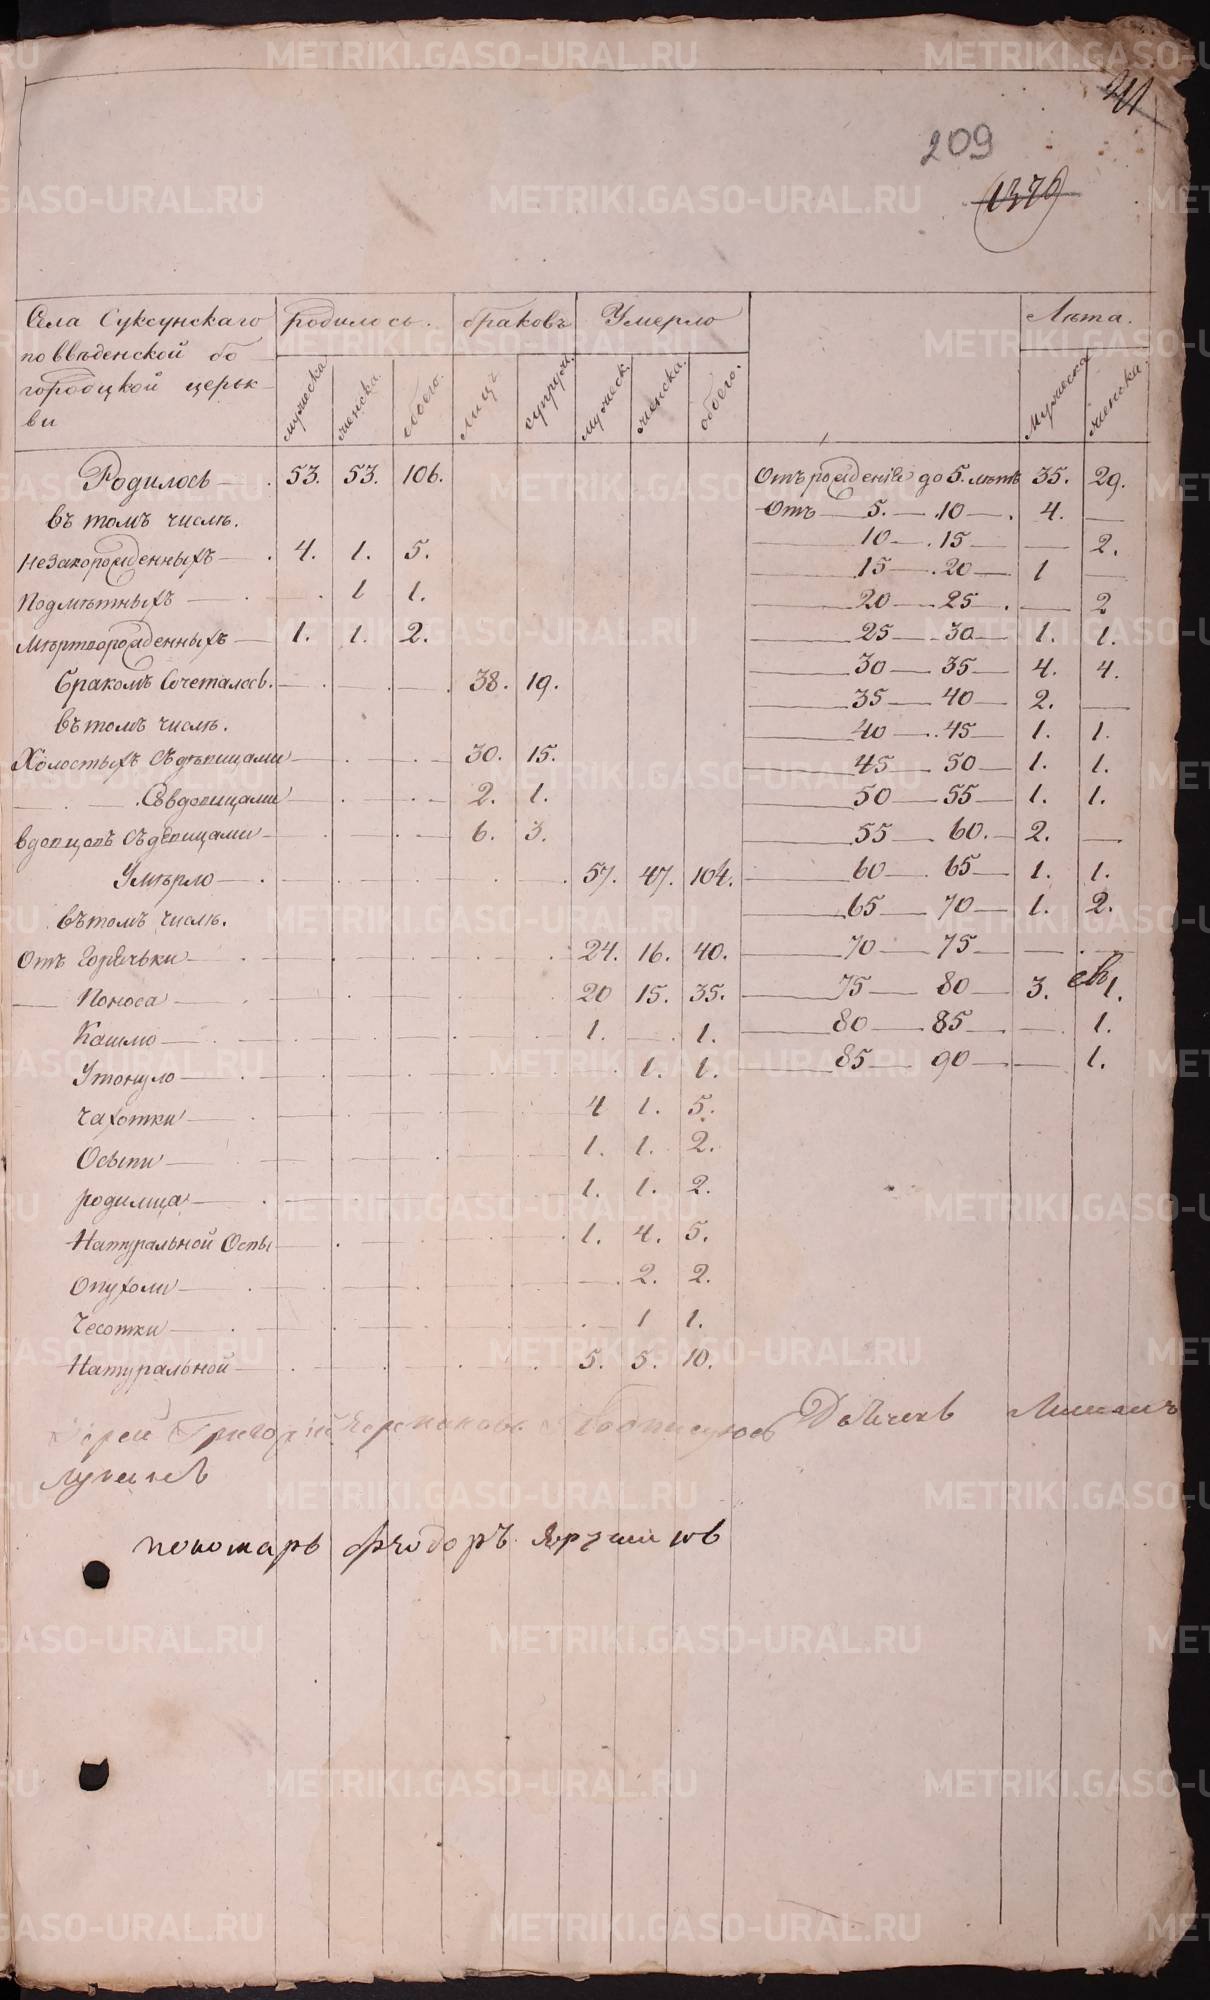 209
(1370)
Села Суксунскаго
по ввѣденской бо
городцкой церьк
ви
родилось.
браковъ
Умерло
Лѣта.
мужеска
женска.
обоего.
лицъ
супруж.
мужеск.
женска.
обоего.
мужеска
женска.
Родилось 53. 53. 106.
въ томъ числѣ.
Незакорожденныхъ 4. 1. 5.
Подмѣтныхъ 1 1.
Мѣртворожденныхъ 1. 1. 2.
Бракомъ Сочеталось. 38. 19.
въ томъ числѣ.
Холостыхъ Съдѣвицами 30. 15.
Совдовицами 2. 1.
вдовцовъ Съдѣвицами 6. 3.
Умѣрло 57. 47. 104.
въ томъ числѣ.
Отъ Горячьки 24. 16. 40.
Поноса 20 15. 35.
Кашлю 1. — 1.
Утонуло 1. 1.
Чахотки 4 1. 5.
Осыпи 1. 1. 2.
родимца 1. 1. 2.
Натуральной Оспы 1. 4. 5.
Опухоли — 2. 2.
Чесотки — 1 1.
Натуральной 5. 5. 10.
Отъ рожденія до 5. лѣтъ 35. 29.
Отъ 5. — 10 — 4. —
10 — 15 — — 2.
15 — 20 — 1 —
20 — 25 — — 2
25 — 30 — 1. 1.
30 — 35 — 4. 4.
35 — 40 — 2. —
40 — 45 — 1. 1.
45 — 50 — 1. 1.
50 — 55 — 1. 1.
55 — 60. — 2. —
60 — 65 — 1. 1.
65 — 70 — 1. 2.
70 — 75 — — —
75 — 80 — 3. 1.
80 — 85 — — 1.
85 — 90 — — 1.
Григорій
пономарь Фѣодоръ
METRIKI.GASO-URAL.RU